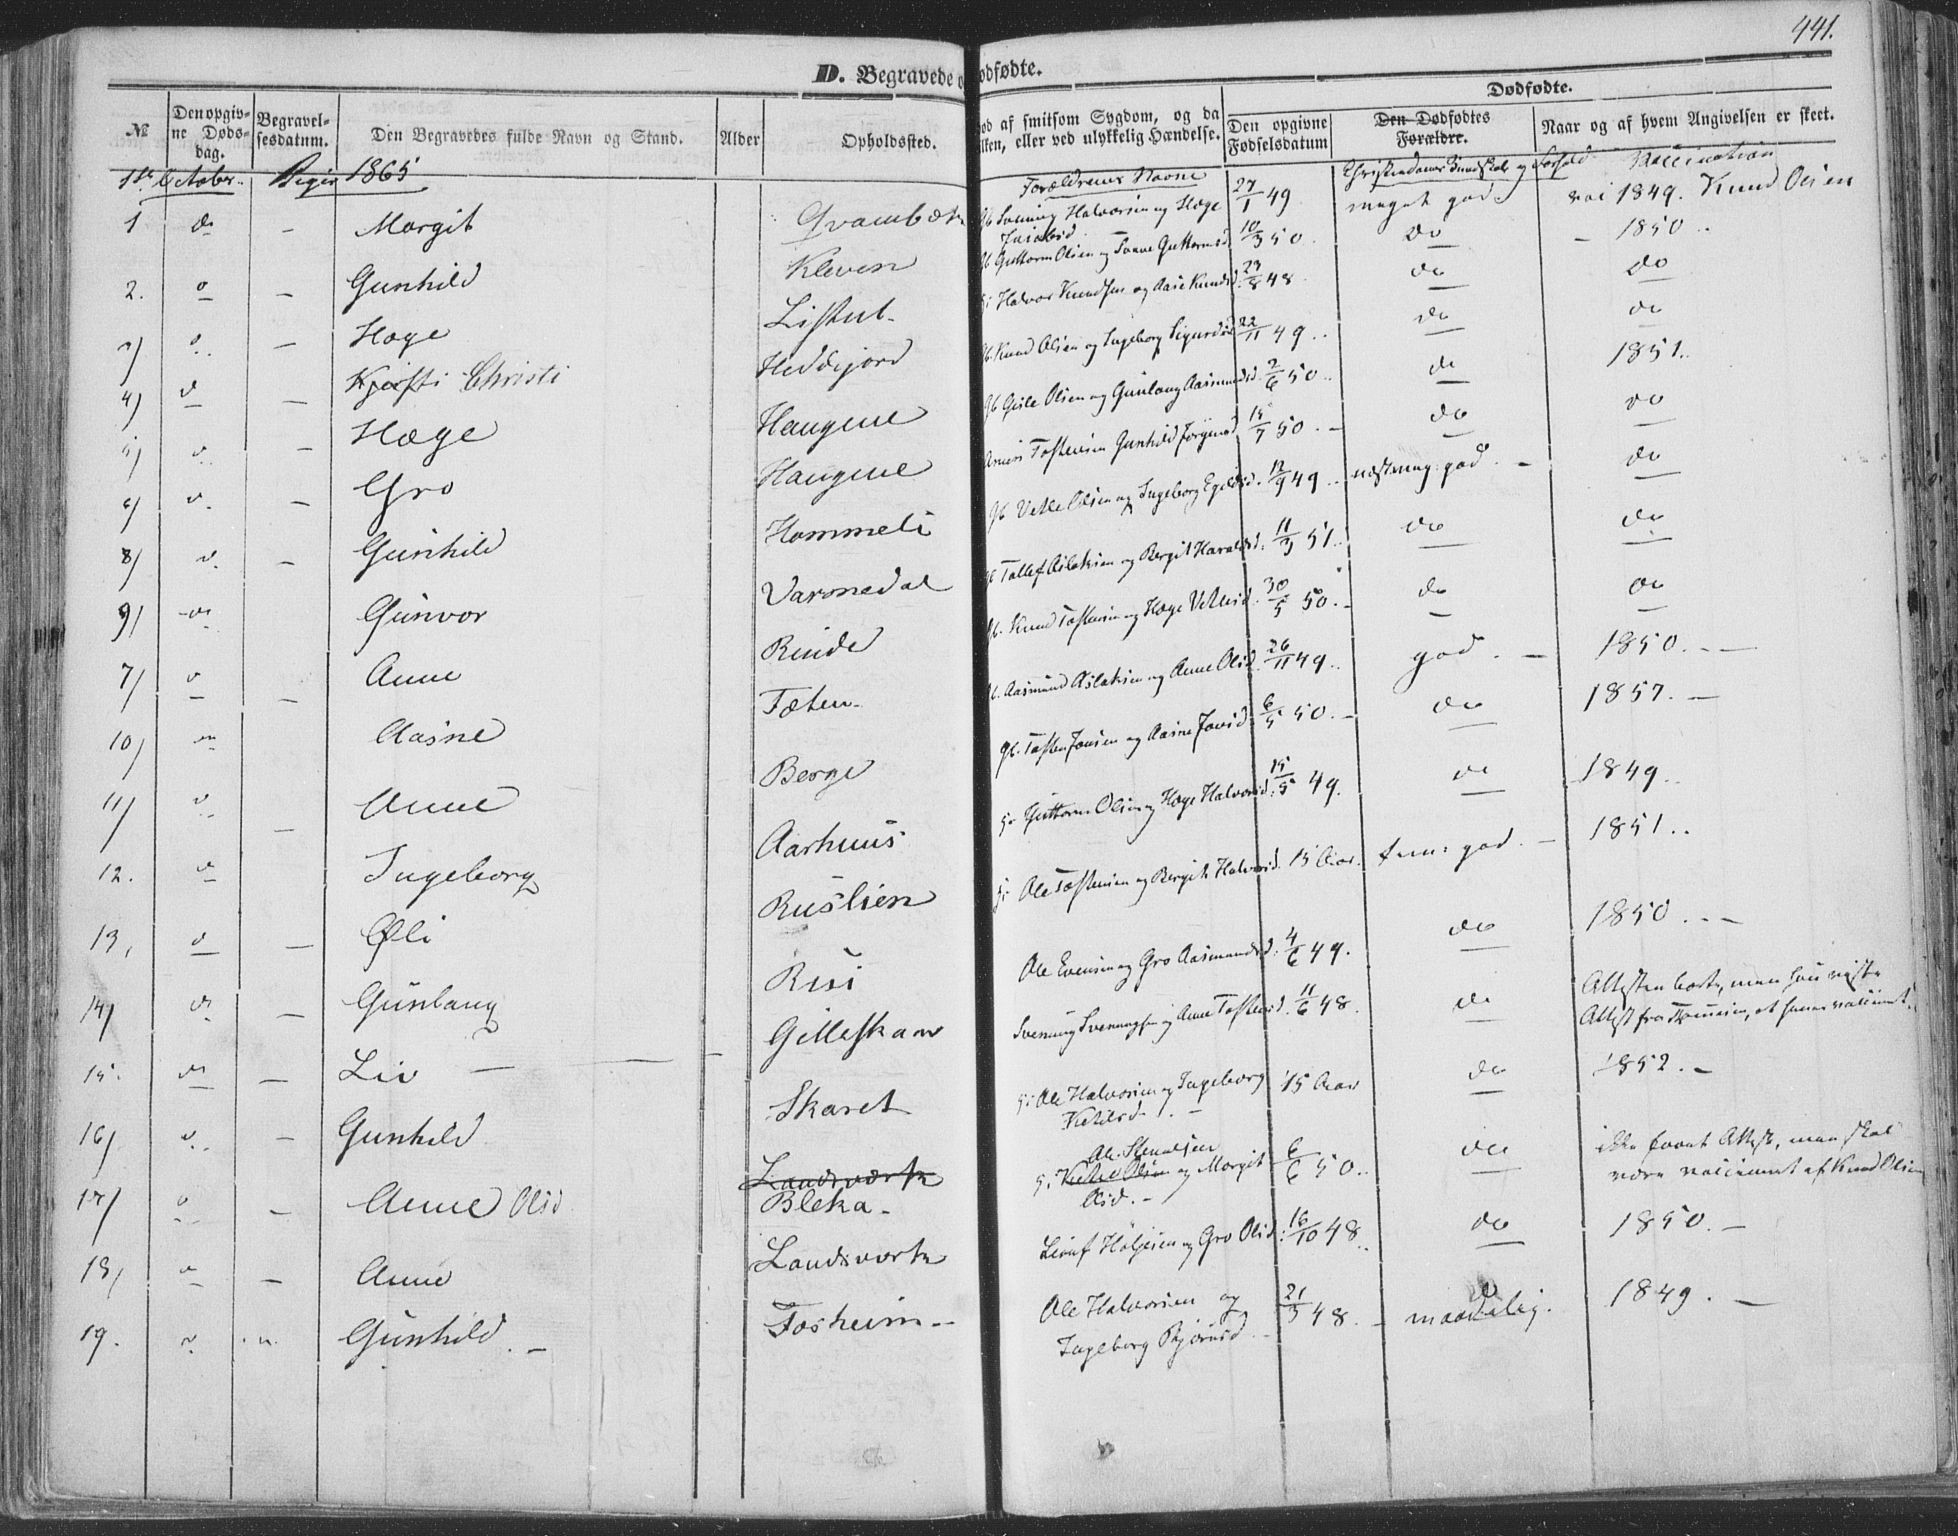 441.
D. Begravede o
ødfødte.
№
Den opgiv-
ne Døds-
dag.
Begravel-
sesdatum.
Den Begravedes fulde Navn og Stand.
Alder
Opholdssted.
ød af smitsom Sygdom, og da
lken, eller ved ulykkelig Hændelse.
Dødfødte.
Den opgivne
Fødselsdatum
Den Dødfødtes
Forældre.
Naar og af hvem Angivelsen er skeet.
1ste October Piger 1865 Forældrenes Navne Christendoms Kundskab og Forhold Vaccination
1 do - Margit Qvambæk Gb Svennug Halvorsen og Hæge 27/1 49 meget god. vac 1849. Knud Olsen
2. o - Gunhild Kleven Gb Guttorm Olsen og Guttormsd. 10/3 50 do - 1850..
3) o - Hæge Listul Halvor Knudsen og Aase Knudsd. 23/8 48. do do
4) d - Kjersti Christi Heddejord Gb. Knud Olsen og Ingeborg Sigurdsd 22/11 49.. do do
5) v - Hæge Haugene Gb Olsen og Gunlaug Aasmundsd. 2/6 50.. do 1851.
6) v. - Gro Haugene Tostensen Gunhild Jørgensd 15/7 50. - do do
8) v. - Gunhild Hommeli Gb Vetle Olsen og Ingeborg Egildsd. 12/9 49.. næstmeg. god. - do
9) do Gunvor Varmedal Tallef Aslaksen og Bergit Haraldsd. 11/3 51.. do do
7) v - Anne Rinde Gb. Knud Tostensen og Hæge Vetlesd. 30/5 50.- do do
10) Aasne Tæten- Aasmund Aslaksen og Anne Olsd. 26/11 49.. god. - 1850. - -
11) v - Anne Berge Gb. Tosten Jonsen og Aasne Jovsd. 6/5 50. - do 1857. -
12. v Ingeborg Aarhuus Guttorm Olsen og Hæge Halvorsd. 15/5 49. do 1849..
13, v - Øli Ruslien Ole Tostensen og Bergit Halvorsd. 15 Aar. tem: god. - 1851..
14) do - Gunlaug Risi Ole Evensen og Gro Aasmundsd. 4/6 49. do 1850. - -
15. do - Liv Gilleskaar Svennug Svennugsen og Anne Tostensd. 11/6 48. do Attesten borte, men
Attest fra
16) v. - Gunhild Skaret Ole Halvorsen og Ingeborg 15 Aar do 1852. -
Ketilsd.
Landsværk
17) v - Anne Olsd Bleka - Ketil Olsen og Margit 6/6 50.. do ikke Attest, men skal
Olsd. - være vaccineret af Knud Olsen
18, v - Anne Landsværk Leouf Høljesen og Gro Olsd. 16/10 48.. do 1850. -
19. v Gunhild. - Fosheim - Ole Halvorsen og 21/3 48. - maadelig. 1849. -
Ingeborg Bjørnsd. -